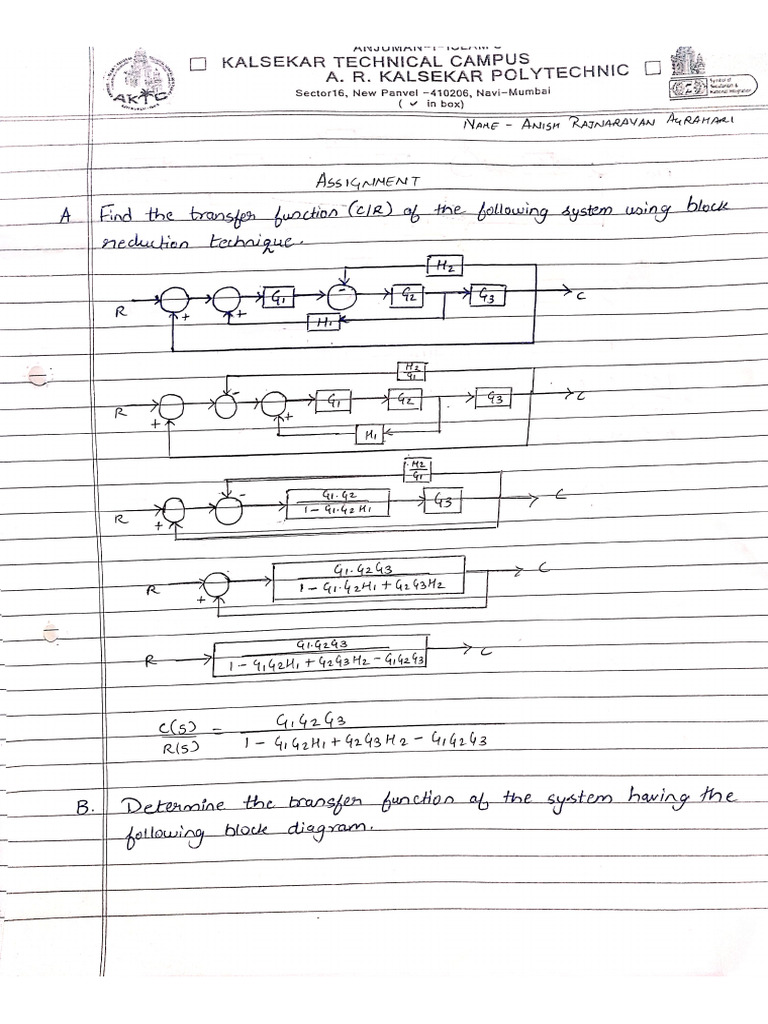 ANJUMAN-I-ISLAM'S
☐ KALSEKAR TECHNICAL CAMPUS
A. R. KALSEKAR POLYTECHNIC ☐
Sector16, New Panvel -410206, Navi-Mumbai
( ✓ in box)
AKTC
Symbol of
Secularism &
National Integration
NAME - ANISH RAJNARAYAN AGRAHARI
ASSIGNMENT
A Find the transfer function (C/R) of the following system using block
reduction technique.
H2
R + + G1 - G2 G3 C
H1
H2/G1
R + - + G1 G2 G3 C
H1
H2/G1
R + - G1.G2 / 1 - G1.G2H1 G3 C
R + G1.G2G3 / 1 - G1.G2H1 + G2G3H2 C
R G1.G2G3 / 1 - G1G2H1 + G2G3H2 - G1G2G3 C
C(S)/R(S) = G1G2G3 / 1 - G1G2H1 + G2G3H2 - G1G2G3
B. Determine the transfer function of the system having the
following block diagram.